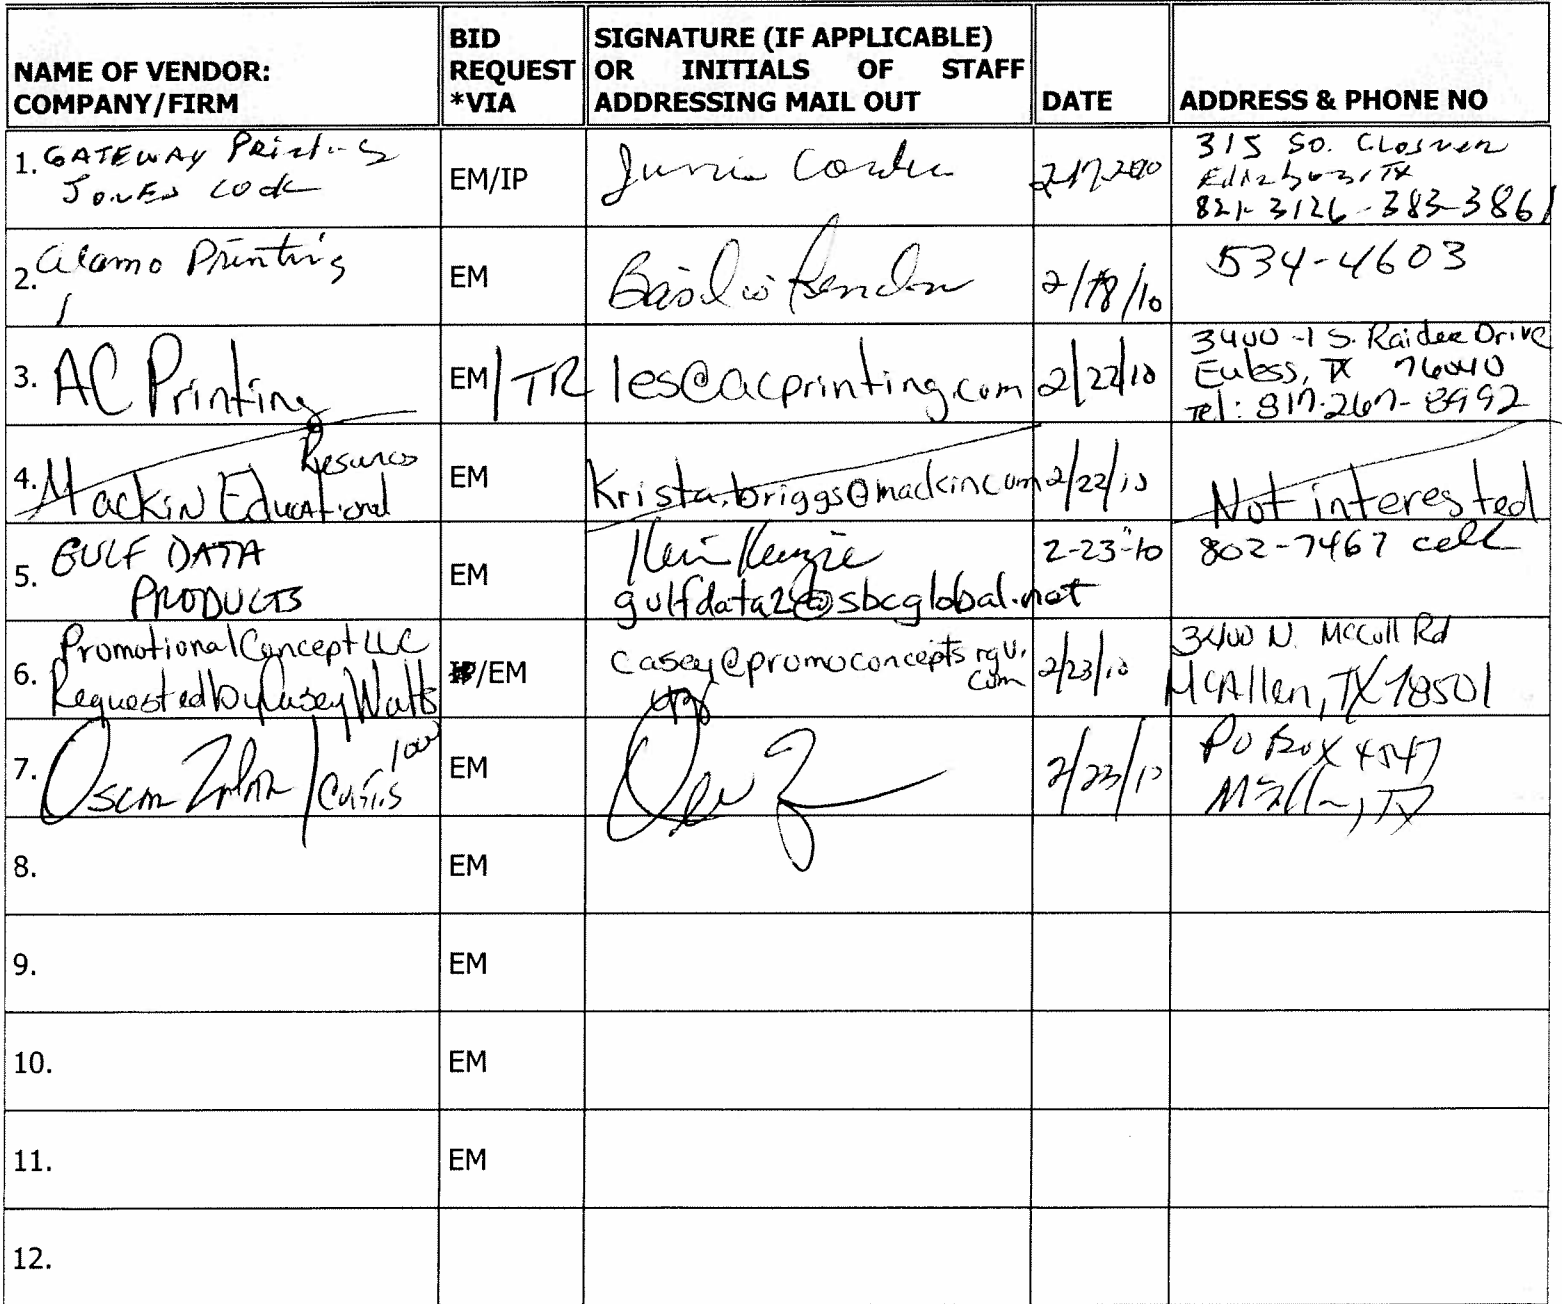 NAME OF VENDOR:
COMPANY/FIRM
BID
REQUEST
*VIA
SIGNATURE (IF APPLICABLE)
OR INITIALS OF STAFF
ADDRESSING MAIL OUT
DATE
ADDRESS & PHONE NO
1. GATEWAY Printing
JONES COOK
EM/IP
315 So. Closner
Edinburg, TX
821-3126 - 383-3861
2. Alamo Printing
EM
2/18/10
534-4603
3. AC Printing
EM/TR
les@acprinting.com
2/22/10
3400-1 S. Raider Drive
Euless, TX 76040
Tel: 817-267-8992
4. Mackin Educational
Resources
EM
Krista.briggs@mackin.com
2/22/10
Not interested
5. GULF DATA
PRODUCTS
EM
gulfdata2@sbcglobal.net
2-23-10
802-7467 cell
6. Promotional Concept LLC
Requested by Casey Watts
/EM
casey@promoconceptsrgv.
com
2/23/10
3400 N. McColl Rd
McAllen, TX 78501
7. Oscar
EM
2/23/10
PO Box 4547
McAllen, TX
8.
EM
9.
EM
10.
EM
11.
EM
12.